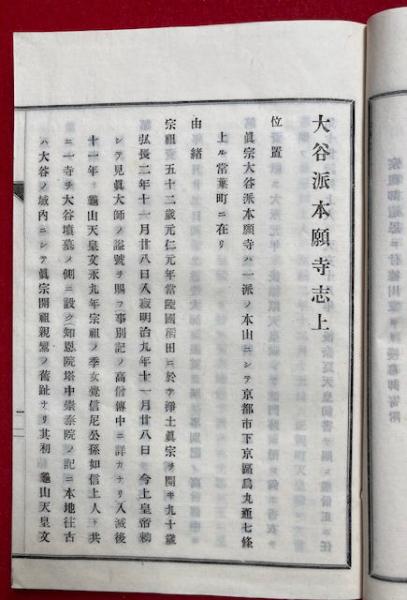 大谷派本願寺志上
位置
眞宗大谷派本願寺ハ一派ノ本山ニシテ京都市下京區烏丸通七條
上ル常葉町ニ在リ
由緒
宗祖五十二歲元仁元年常陸國稻田ニ於テ淨土眞宗ヲ開キ九十歲
弘長二年十一月廿八日入寂明治九年十一月廿八日 今上皇帝
シテ見眞大師ノ謚號ヲ賜フ事別記ノ高僧傳中ニ詳カナリ入滅後
十一年 龜山天皇文永九年宗祖ノ季女覺信尼公孫如信上人ト共
ニ一寺ヲ大谷墳墓ノ側ニ設ク知恩院塔中崇泰院ノ記ニ本地往古
ハ大谷ノ城內ニシテ眞宗開祖親鸞ノ舊趾ナリ其初 龜山天皇文